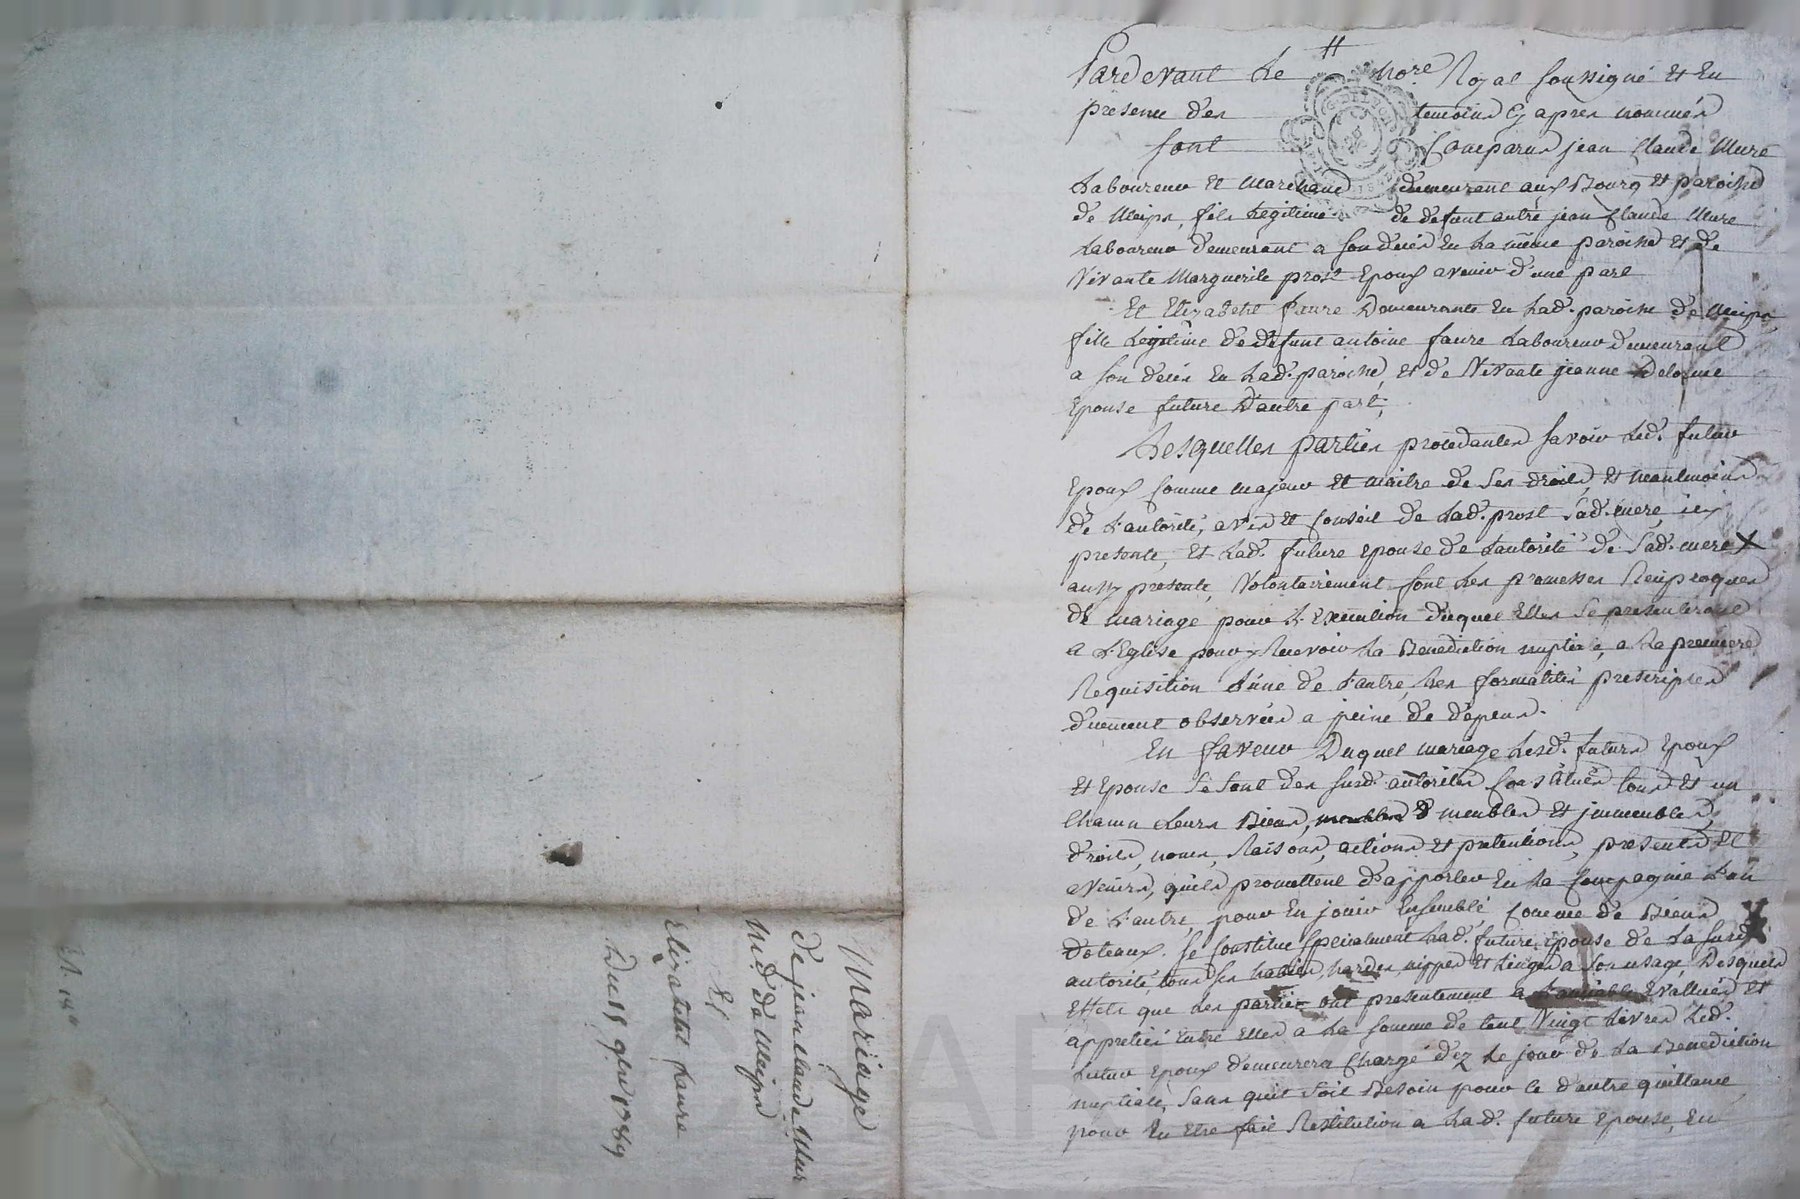 Pardevant Le nore Royal soussigné Et En
presence des temoins Cy apres nommés
sont Comparus jean Claude Mure
Laboureur et Marchand demeurant aux Bourg et paroisse
de Meips, fils Legitime de defunt autre jean Claude Mure
Laboureur demeurant a son deces En La même paroisse et de
Vivante Marguerite prost Epoux avenir d'une part
Et Elizabeht faure Demeurante En Lad. paroisse de Meips
fille Legitime de defunt antoine faure Laboureur demeurant
a son deces En Lad. paroisse, et de Vivante jeanne Delorme
Epouse future D'autre part;
Lesquelles parties procedantes savoir Led. futur
Epoux Comme majeur et maitre de ses droits, et neantmoins
de L'autorité, avis et Conseil de Lad. prost sad. mere icy
presente, et Lad. future Epouse de Lautorité de sad. mere X
aussy presente, Volontairement font Les promesses Reciproques
de mariage pour L'Execution duquel Elles se presenteront
a L'Eglise pour y Recevoir La Benediction nuptiale, a La premiere
Requisition L'une de L'autre, Les formalités prescriptes
duement observées a peine de depens.
En faveur Duquel mariage Lesd. futurs Epoux
et Epouse se sont des susd. autorités Constitués tous et un
Chacun Leurs Biens, meubles et jmmeubles,
droits, noms, Raisons, actions et pretentions, presents Et
avenirs, quils promettent d'apporter En La Compagnie L'un
de L'autre, pour En jouir Ensemble, Comme de Biens
Doteaux. Se Constitue specialement Lad. future epouse de La susd.
autorité, tous ses habits, hardes, nippes et Linges a son usage, Desquels
Effets que Les parties ont presentement a L'amiable Evalluées et
appretiés Entre Elles a La somme de Cent Vingt Livres Led.
futur Epoux demeurera Chargé dez Le jour de La Benediction
nuptiale, sans quil soit Besoin pour ce d'autre quittance
pour En Etre fait Restitution a Lad. future Epouse, En
Mariage
de jean Claude Mure
Md. de Meips
Et
Elizabeht faure
Du 15 9bre 1789